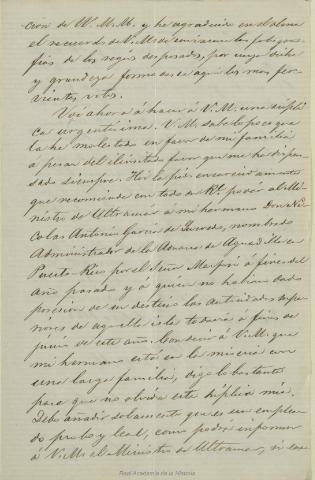 cion de V. M. M. y he agradecido en el alma
el recuerdo de V. M. de enviarme las fotogra-
fias de los regios desposados, por cuya dicha
y grandeza formo desde aquí los mas fer-
vientes votos.
Voi ahora á hacer á V. M. una súpli-
ca urgentisima. V. M. sabe lo poco que
la he molestado en favor de mi familia
á pesar del ilimitado favor que me ha dispen-
sado siempre. Hoi la pido encarecidamente
que recomiende con todo su Rl. poder al Mi-
nistro de Ultramar á mi hermano Don Ni-
colas Antonio Garcia de Quevedo, nombrado
Administrador de la Aduana de Aguadilla en
Puerto Rico por el Señor Marfori á fines del
año pasado y á quien no habian dado
posesion de su destino las autoridades
de aquella isla todavia á fines de
junio de este año. Considere V. M. que
mi hermano está en la miseria con
una larga familia, digo lo bastante
para que no olvide esta súplica mia.
Debo añadir solamente que es un emplea-
do probo y leal, como podrá informar
á V. M. el Ministro de Ultramar, si
Real Academia de la Historia